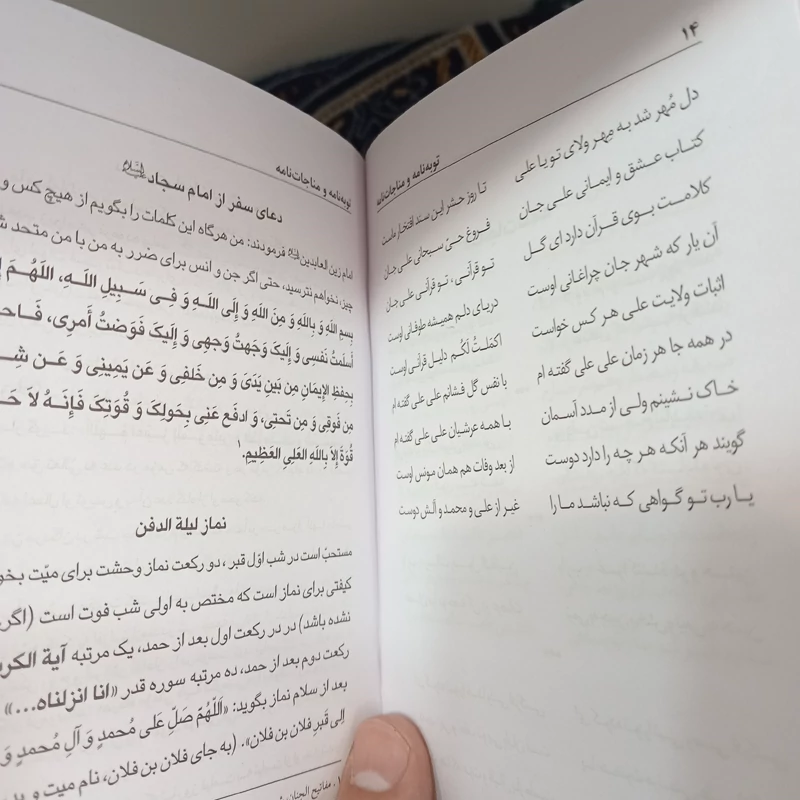 ۱۴
توبه‌نامه و مناجات‌نامه
دل مُهر شد به مهر ولای تو یا علی تا روز حشر این سند افتخار ماست
کتاب عشق و ایمانی علی جان فروغ حیّ سبحانی علی جان
کلامت بوی قرآن دارد ای گل تو قرآنی، تو قرآنی علی جان
آن یار که شهر جان چراغانی اوست دریای دلم همیشه طوفانی اوست
اثبات ولایت علی هر کس خواست اکمَلتُ لَکُم دلیل قرآنی اوست
در همه جا هر زمان علی علی گفته ام با نفس گل فشانم علی علی گفته ام
خاک نشینم ولی از مدد آسمان با همه عرشیان علی علی گفته ام
گویند هر آنکه هر چه را دارد دوست از بعد وفات هم همان مونس اوست
یا رب تو گواهی که نباشد ما را غیر از علی و محمد و آلش دوست
توبه‌نامه و مناجات‌نامه
دعای سفر از امام سجاد
امام زین العابدین فرمودند: من هرگاه این کلمات را بگویم از هیچ کس و
چیز، نخواهم نترسید، حتی اگر جن و انس برای ضرر به من با من متحد
بِسمِ اللهِ وَ بِاللهِ وَ مِنَ اللهِ وَ إِلَی اللهِ وَ فِی سَبِیلِ اللهِ، اللهُمَ
أسلَمتُ نَفسِی وَ إِلَیکَ وَجَهتُ وَجهِی وَ إِلَیکَ فَوَضتُ أَمرِی،
بِحِفظِ الإِیمَانِ مِن بَینِ یَدَیَ وَ مِن خَلفِی وَ عَن یَمِینِی وَ عَن
مِن فَوقِی وَ مِن تَحتِی، وَ ادفَع عَنِی بِحَولِکَ وَ قُوَتِکَ فَإِنَهُ لاَ
قُوَةَ إِلاَ بِاللهِ العَلِیِ العَظِیمِ.۱
نماز لیلة الدفن
مستحبّ است در شب اوّل قبر ، دو رکعت نماز وحشت برای میّت
کیفتی برای نماز است که مختص به اولی شب فوت است (اگر
نشده باشد) در در رکعت اول بعد از حمد، یک مرتبه آیة
رکعت دوم بعد از حمد، ده مرتبه سوره قدر «انا انزلناه...»
بعد از سلام نماز بگوید: «اَللّهُمّ صَلِّ عَلی مُحمدٍ وَ آلِ مُحمدٍ وَ
اِلی قَبرِ فلان بن فلان». (به جای فلان بن فلان، نام میت و
۱. مفاتیح الجنان،